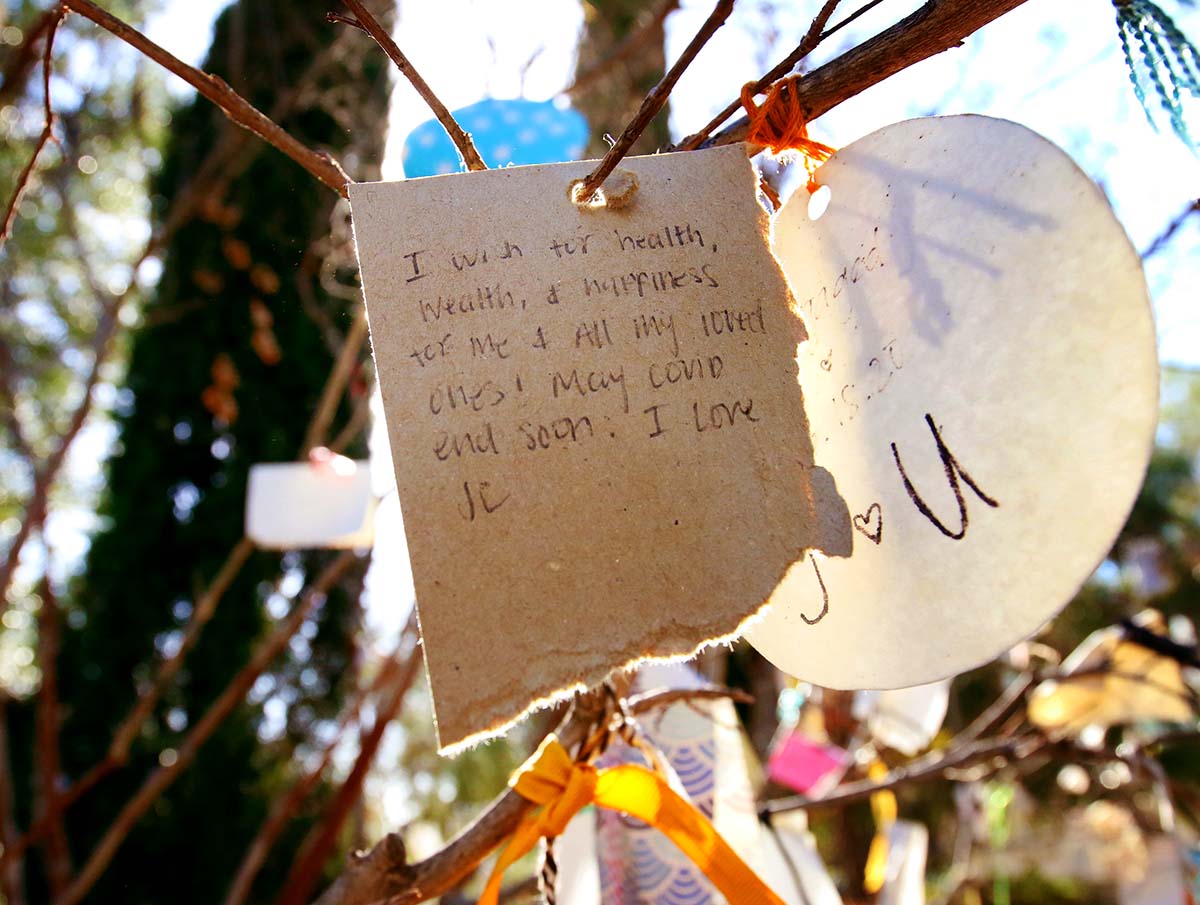 I wish for health,
Wealth, & happiness
for Me & All my loved
ones! May covid
end soon. I Love
JC
J ♡ U